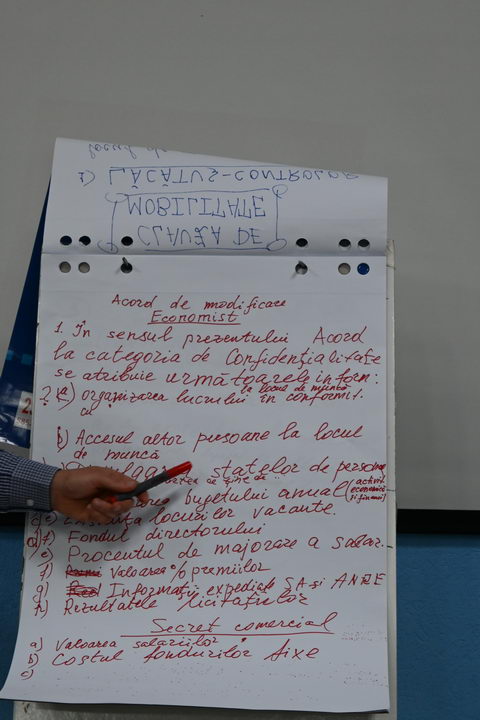 CLAUZA DE
MOBILITATE
1) LĂCĂTUȘ-CONTROLOR
locul de
Acord de modificare
Economist
1. În sensul prezentului Acord
la categoria de Confidențialitate
se atribuie următoarele inform:
la locul de muncă
organizarea lucrului în conformit.
cu
b) Accesul altor persoane la locul
de muncă
statelor de personal
bugetului anual (activit.
economică
și financ)
locurilor vacante.
Fondul directorului
e) Procentul de majorare a salar.
f) Valoarea % premiilor
g) Informații expediate SA și ANRE
h) Rezultatele licitațiilor
Secret comercial
a) Valoarea salariilor
b) Costul fondurilor fixe
c)